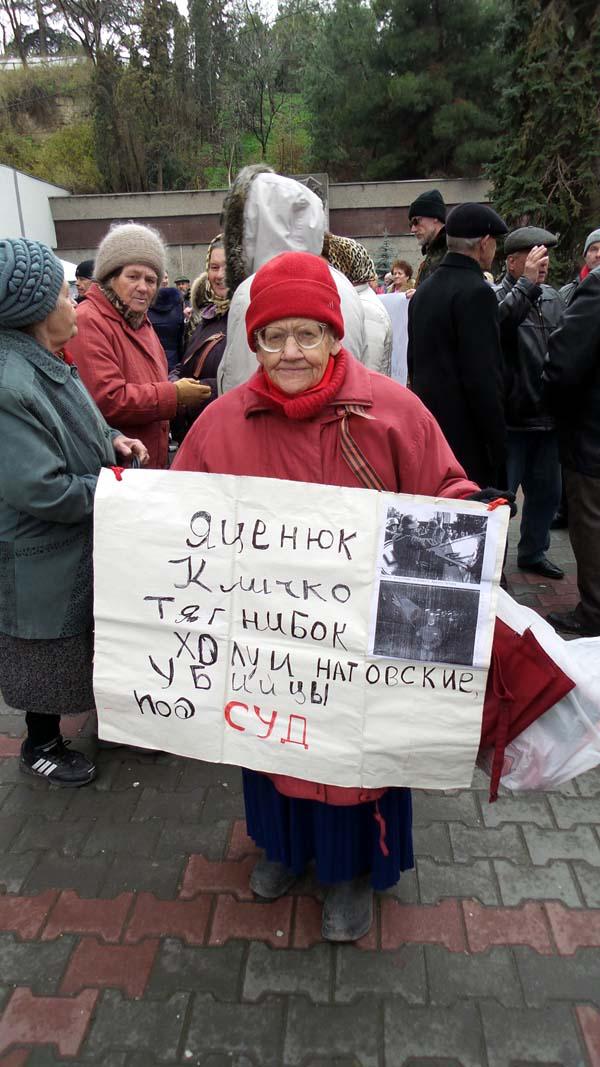 Яценюк
Кличко
Тягнибок
холуи натовские,
убийцы
под суд